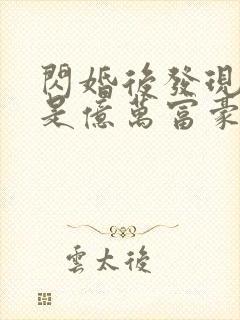 閃婚後發現
是億萬富豪
雲太後